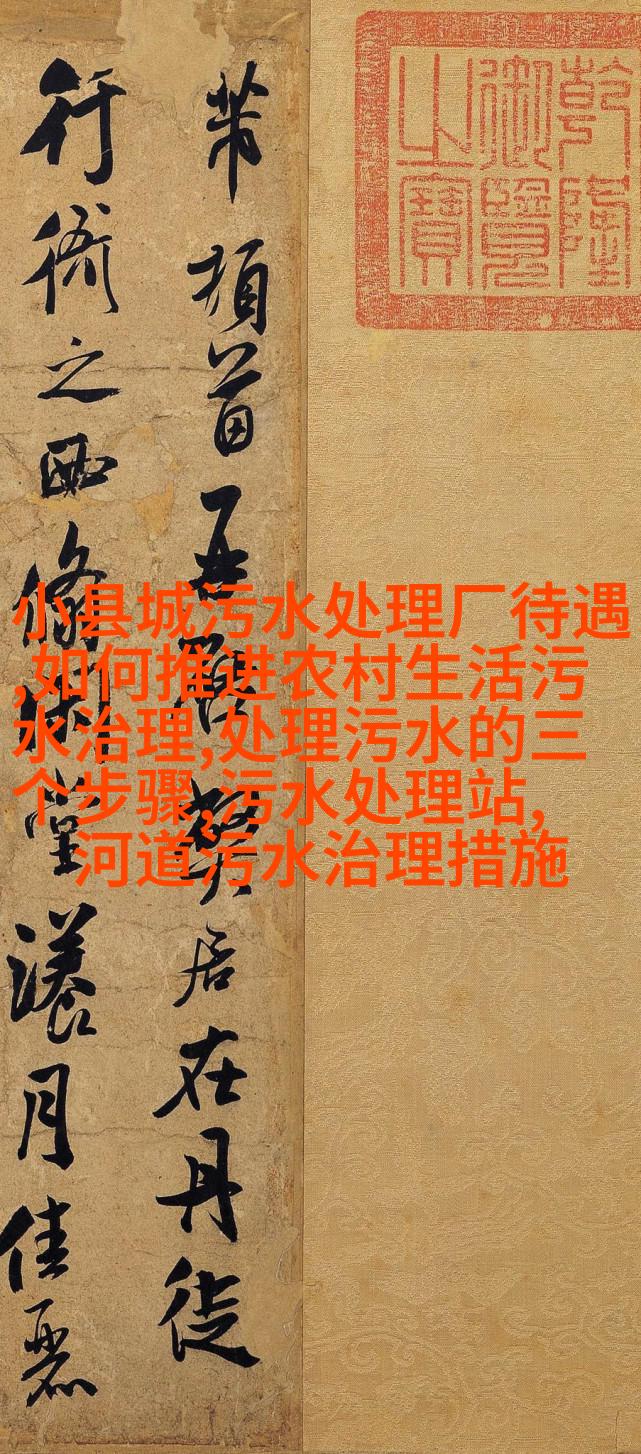 乾隆
御覽
之寶
芾頓首再啓弊居在丹徒
行衙之西翛閑堂漾月佳麗
小县城污水处理厂待遇
,如何推进农村生活污
水治理,处理污水的三
个步骤,污水处理站,
河道污水治理措施